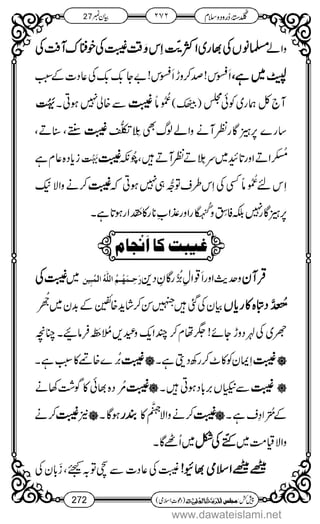 بیان نمبر 27
۲۷۲
گلدستۂ درود و سلام
والے مسلمانوں کی بھاری اکثریت اِس وقت غیبت کی خوفناک آفت کی
لپیٹ میں ہے، افسوس! صد کروڑ افسوس! بے جا بک بک کی عادت کے سبب
آج کل ہماری کوئی مجلس (بیٹھک) عُمُوماً غیبت سے خالی نہیں ہوتی۔ بہت
سارے پرہیزگار نظر آنے والے لوگ بھی بلاتکلُّف غیبت سنتے، سناتے،
مسکراتے اور تائید میں سر ہلاتے نظر آتے ہیں، چونکہ غیبت بہت زیادہ عام ہے
اِس لئے عُمُوماً کسی کی اِس طرف توجُّہ ہی نہیں ہوتی کہ غیبت کرنے والا نیک
پرہیزگار نہیں بلکہ فاسق و گنہگار اور عذابِ نار کا حقدار ہوتا ہے۔
غیبت کا اَنجام
قرآن و حدیث اور اَقوالِ بُزُرگانِ دین رَحِمَہُمُ اللّٰہُ الْمُبِیْن میں غیبت کی
مُتعدّد تباہ کاریاں بیان کی گئی ہیں جنہیں سُن کر شاید خائفین کے بدن میں جُھر
جُھری کی لہر دوڑ جائے! جگر تھام کر چند ایک وعیدیں مُلاحَظہ فرمائیے۔ چنانچہ
غیبت ایمان کو کاٹ کر رکھ دیتی ہے۔ غیبت بُرے خاتمے کا سبب ہے۔
غیبت سے نیکیاں برباد ہوتی ہیں۔ غیبت مُردہ بھائی کا گوشت کھانے
کے مُترادِف ہے۔ غیبت کرنے والا جہنّم کا بندر ہوگا۔ نیز غیبت کرنے
والا قیامت میں کتے کی شکل میں اُٹھے گا۔
میٹھے میٹھے اسلامی بھائیو! غیبت کی عادت سے سچی توبہ کیجئے، زبان کی
272
پیش کش: مجلس المدینۃ العلمیۃ (دعوتِ اسلامی)
www.dawateislami.net